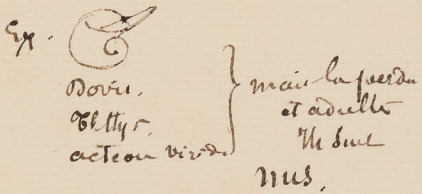 Ex.
Doris,
Thethys
acteon viride
mais la perdu
et adulte
Ils sont
nus.